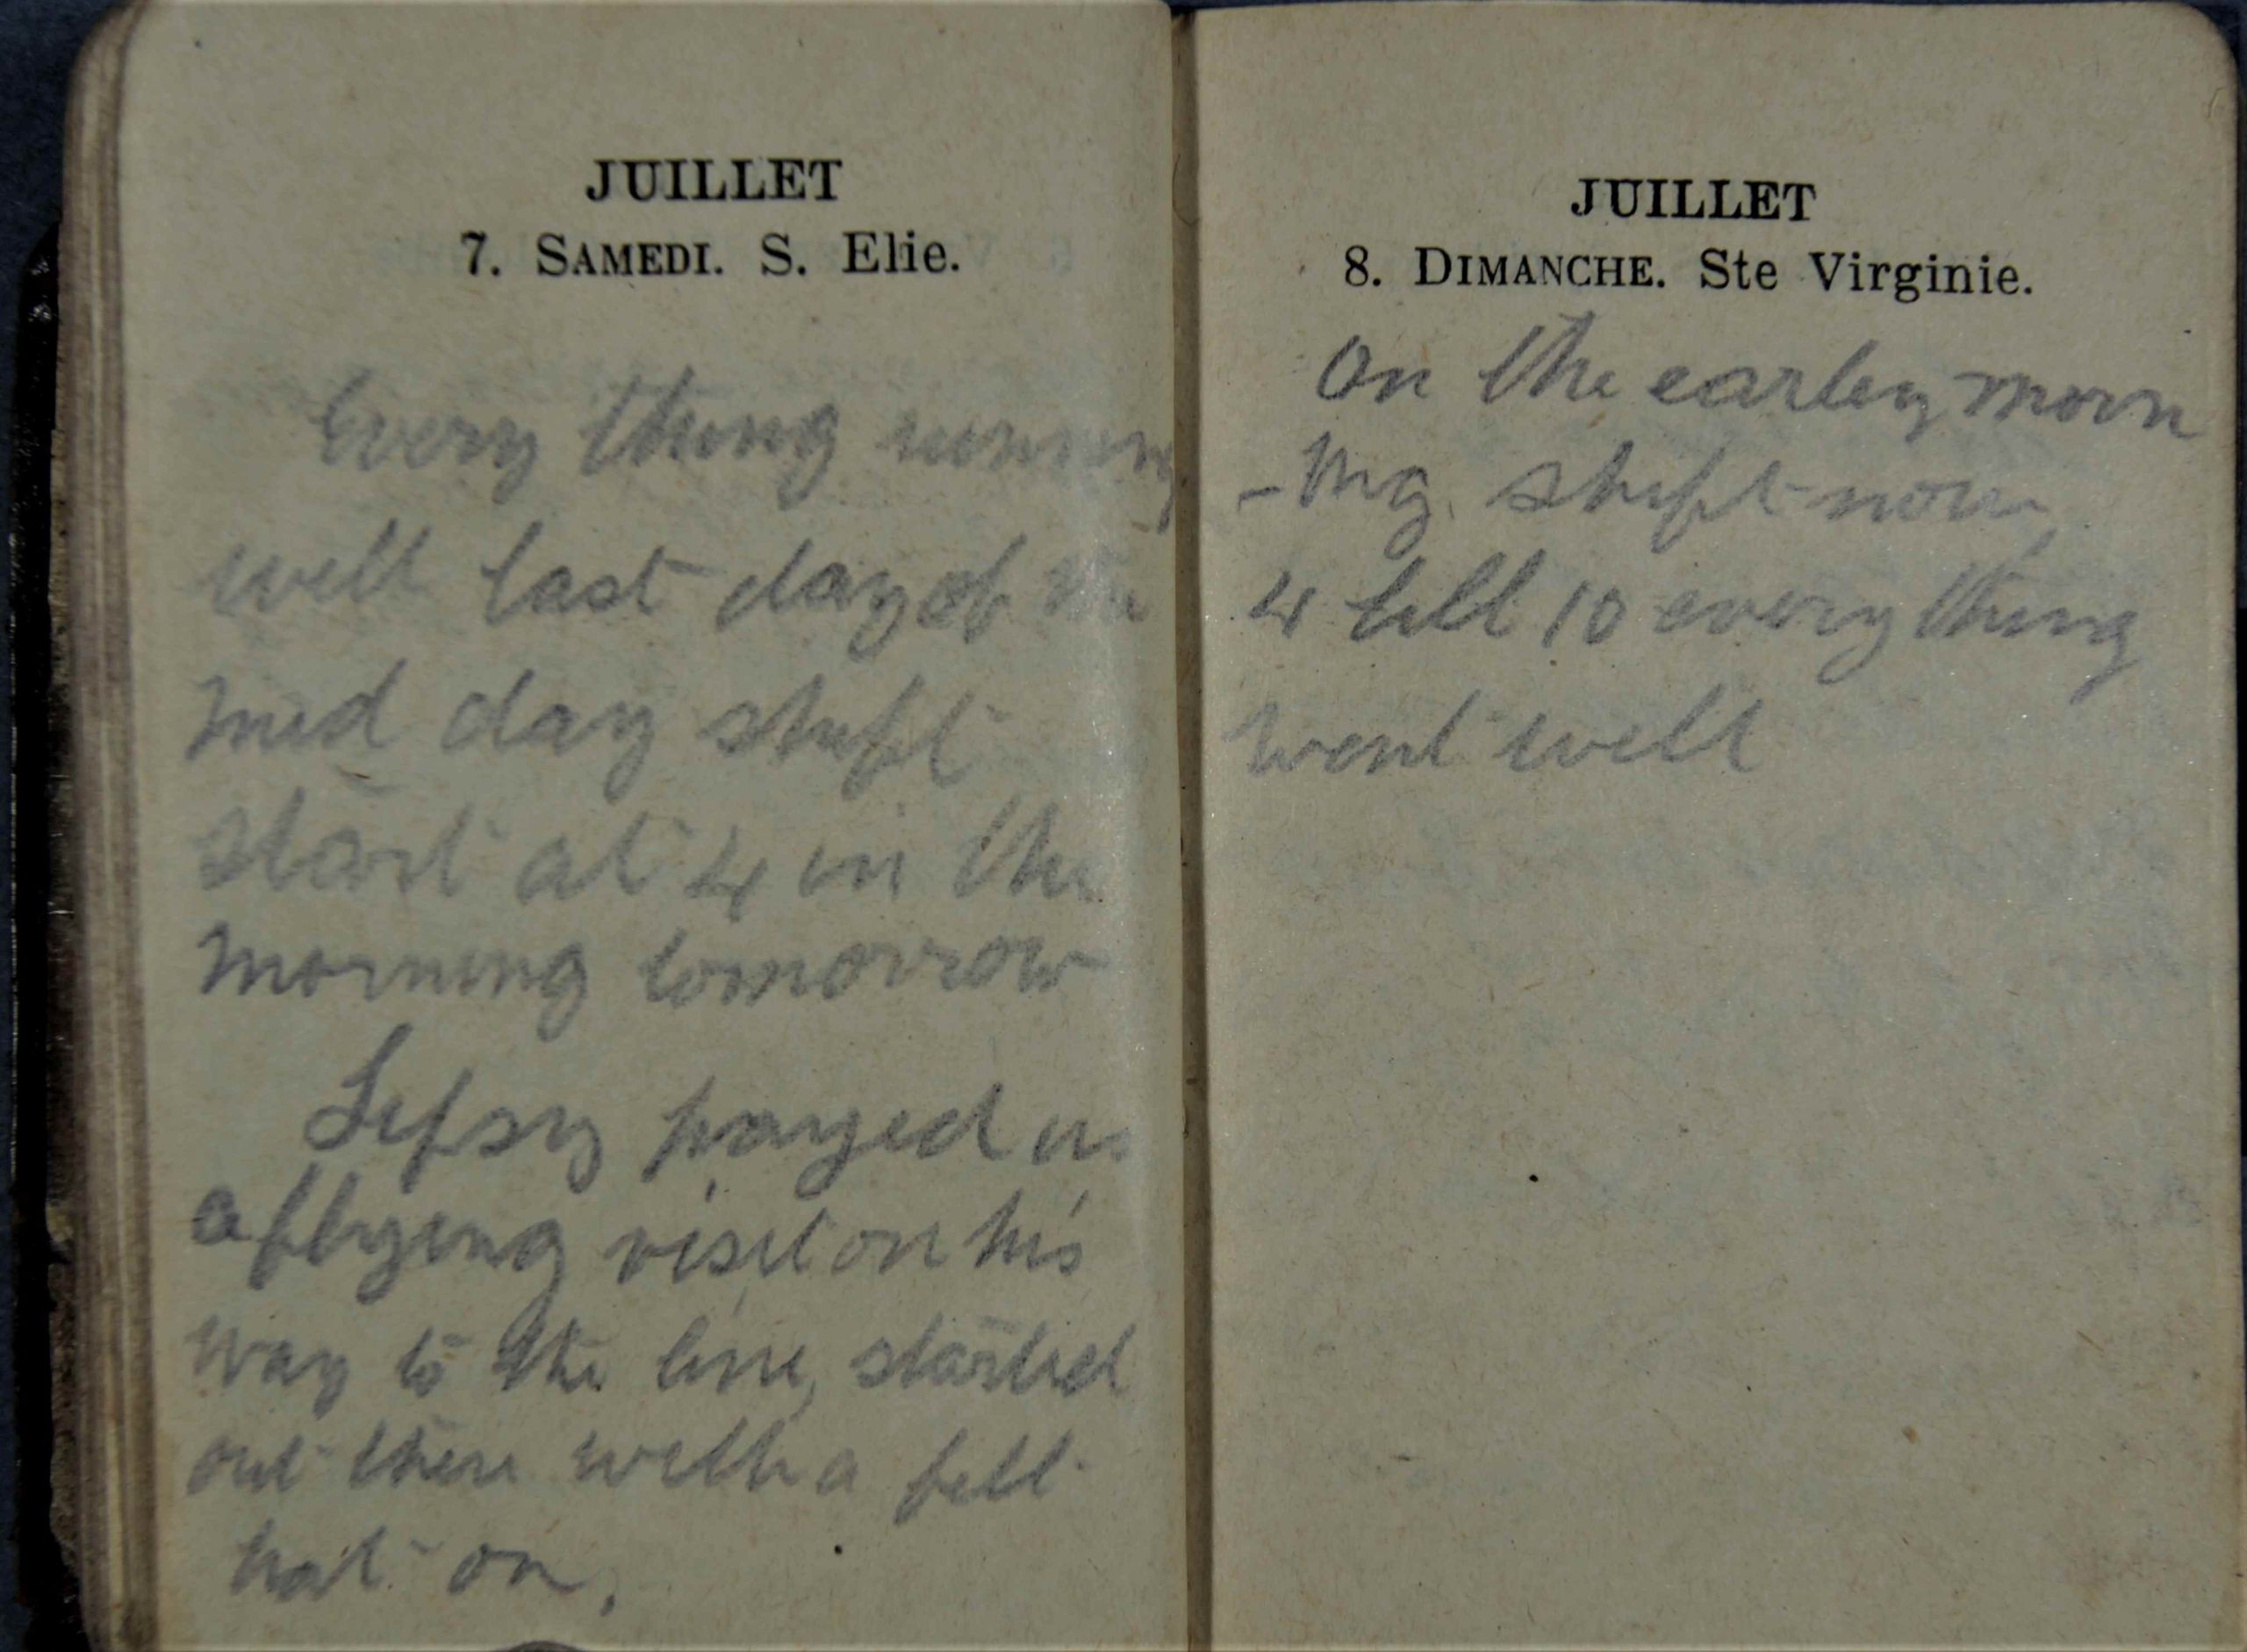 JUILLET
7. SAMEDI. S. Elie.
Every thing running
well last day of the
mid day shift
start at 4 in the
morning tomorrow
payed us
a flyeing visit on his
way to the line, started
out there with a felt
hat on.
JUILLET
8. DIMANCHE. Ste Virginie.
On the earley morn
-ing shift now,
4 till 10 every thing
went well